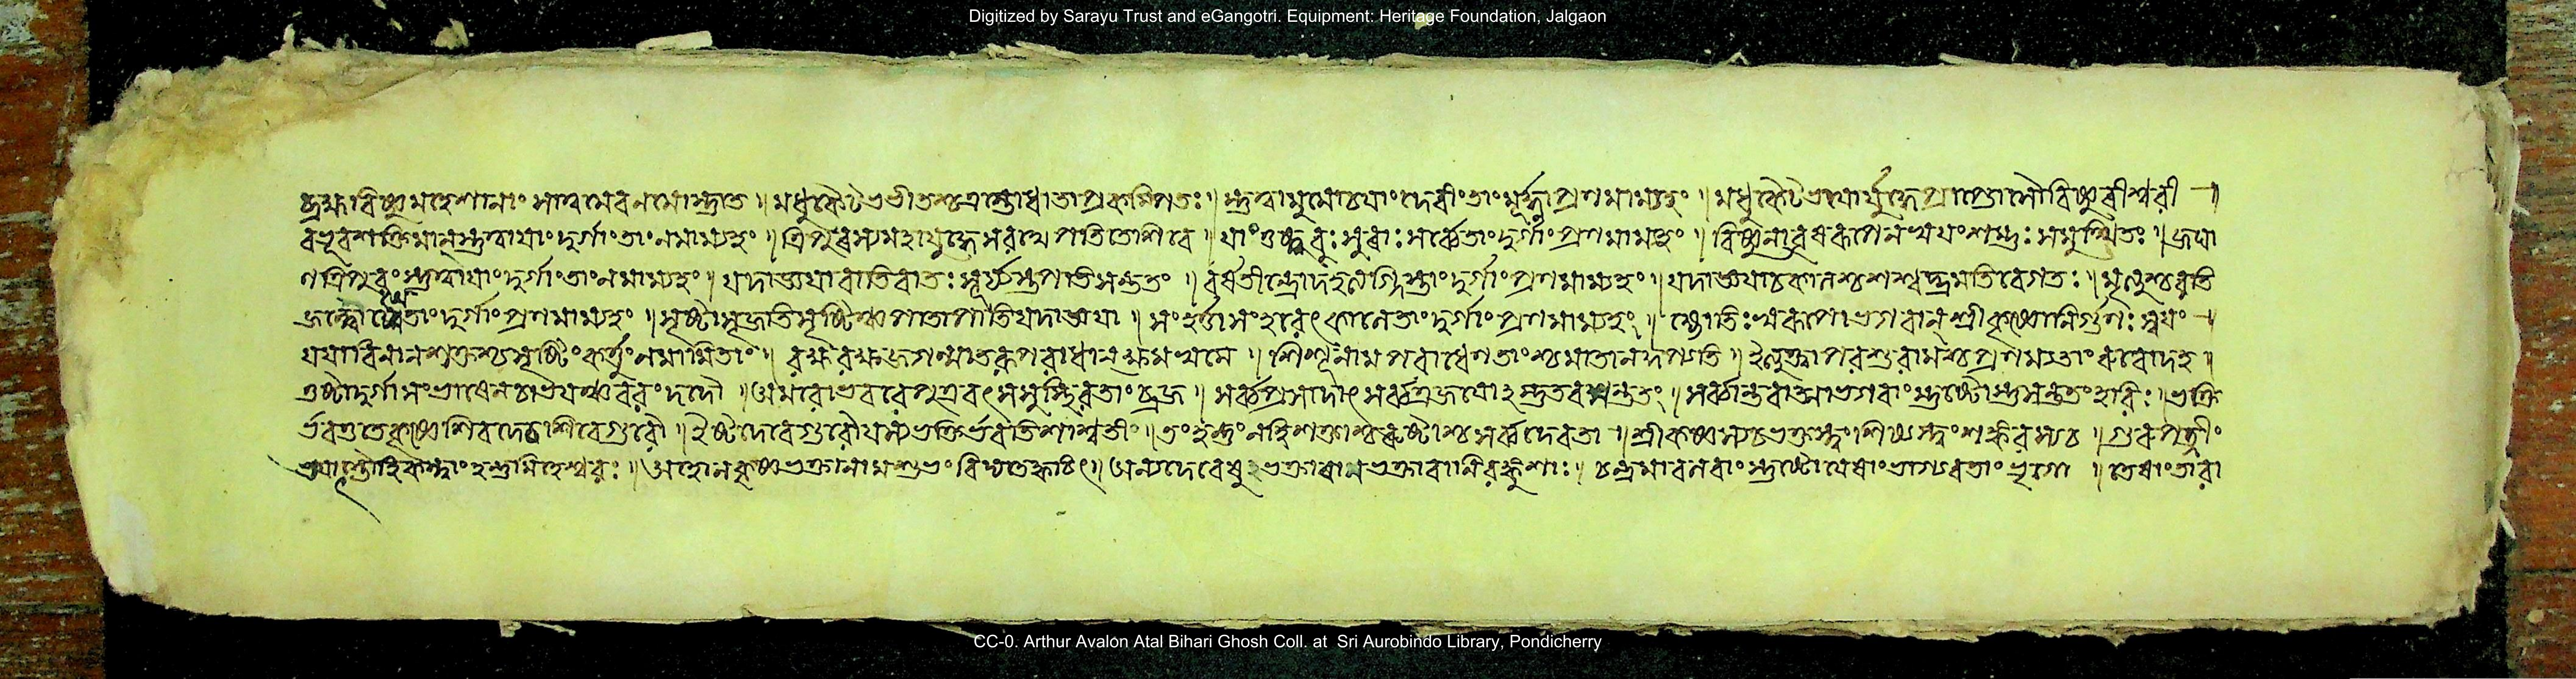 Digitized by Sarayu Trust and eGangotri. Equipment: Heritage Foundation, Jalgaon
ব্রহ্মাবিষ্ণুমহেশানাং নমোস্তুতে ॥ মধুকৈটভভীতশ্চ ধাতা ॥ স্তুত্বা দেবীং তাং মূর্দ্ধ্না প্রণমাম্যহং ॥ মধুকৈটভয়োর্যুদ্ধে বিষ্ণুরীশ্বরী ॥
বভূব শক্তিমান্ স্তুত্বা যাং দুর্গাং তাং নমাম্যহং ॥ ত্রিপুরস্য মহাযুদ্ধে সরথে পতিতে শিবে ॥ যাং তুষ্টুবুঃ সুরাঃ সর্ব্বে তাং দুর্গাং প্রণমাম্যহং ॥ বিষ্ণুনা বৃষরূপেন স্বয়ং শম্ভুঃ সমুত্থিতঃ ॥ জঘা
ন ত্রিপুরং স্তুত্বা যাং দুর্গাং তাং নমাম্যহং ॥ যদাজ্ঞয়া বাতি বাতঃ সূর্য্যস্তপতি সন্ততং ॥ বর্ষতীন্দ্রো দহত্যগ্নিস্তাং দুর্গাং প্রণমাম্যহং ॥ যদাজ্ঞয়া কালশ্চ শশ্বদ্ভ্রমতি বেগতঃ ॥ মৃত্যুশ্চরতি
তাং দুর্গাং প্রণমাম্যহং ॥ স্রষ্টা সৃজতি সৃষ্টিঞ্চ পাতা পাতি যদাজ্ঞয়া ॥ সংহর্ত্তা সংহরেৎ কালে তাং দুর্গাং প্রণমাম্যহং ॥ জ্যোতিঃস্বরূপো ভগবান্ শ্রীকৃষ্ণো নির্গুণঃ স্বয়ং
যয়া বিনা ন শক্তশ্চ সৃষ্টিং কর্ত্তুং নমামি তাং ॥ রক্ষ রক্ষ জগন্মাতরপরাধং ক্ষমস্ব মে ॥ শিশূনামপরাধেন মাতা ন কুপ্যতি ॥ ইত্যুক্ত্বা পরশুরামশ্চ প্রণম্য তাং রুরোদ হ ॥
তুষ্টা দুর্গা সংভ্রমেণ চাভয়ঞ্চ বরং দদৌ ॥ অমরো ভব হে পুত্র বৎস সুস্থিরতাং ব্রজ ॥ সর্ব্বপ্রসাদাৎ সর্ব্বত্র জয়োঽস্তু তব সন্ততং ॥ সর্ব্বান্তরাত্মা ভগবাংস্তুষ্টোঽস্তু সন্ততং হরিঃ ॥ ভক্তি
র্ভবতু তে কৃষ্ণে শিবদে চ শিবে গুরৌ ॥ ইষ্টদেবে গুরৌ যস্য ভক্তির্ভবতি শাশ্বতী ॥ তং হন্তুং ন হি শক্তাশ্চ রুষ্টাশ্চ সর্ব্বদেবতা ॥ শ্রীকৃষ্ণস্য চ ভক্তস্ত্বং শিষ্যস্ত্বং শঙ্করস্য চ ॥ গুরুপত্নীং
॥ অহো ন কৃষ্ণভক্তানামশুভং বিদ্যতে ক্বচিৎ ॥ অন্যদেবেষু ভক্তা বা ন ভক্তা বা নিরঙ্কুশাঃ ॥ চন্দ্রমা বলবাংস্তুষ্টো যেষাং ভাগ্যবতাং ভৃগো ॥ তেষাং তারা
CC-0. Arthur Avalon Atal Bihari Ghosh Coll. at Sri Aurobindo Library, Pondicherry